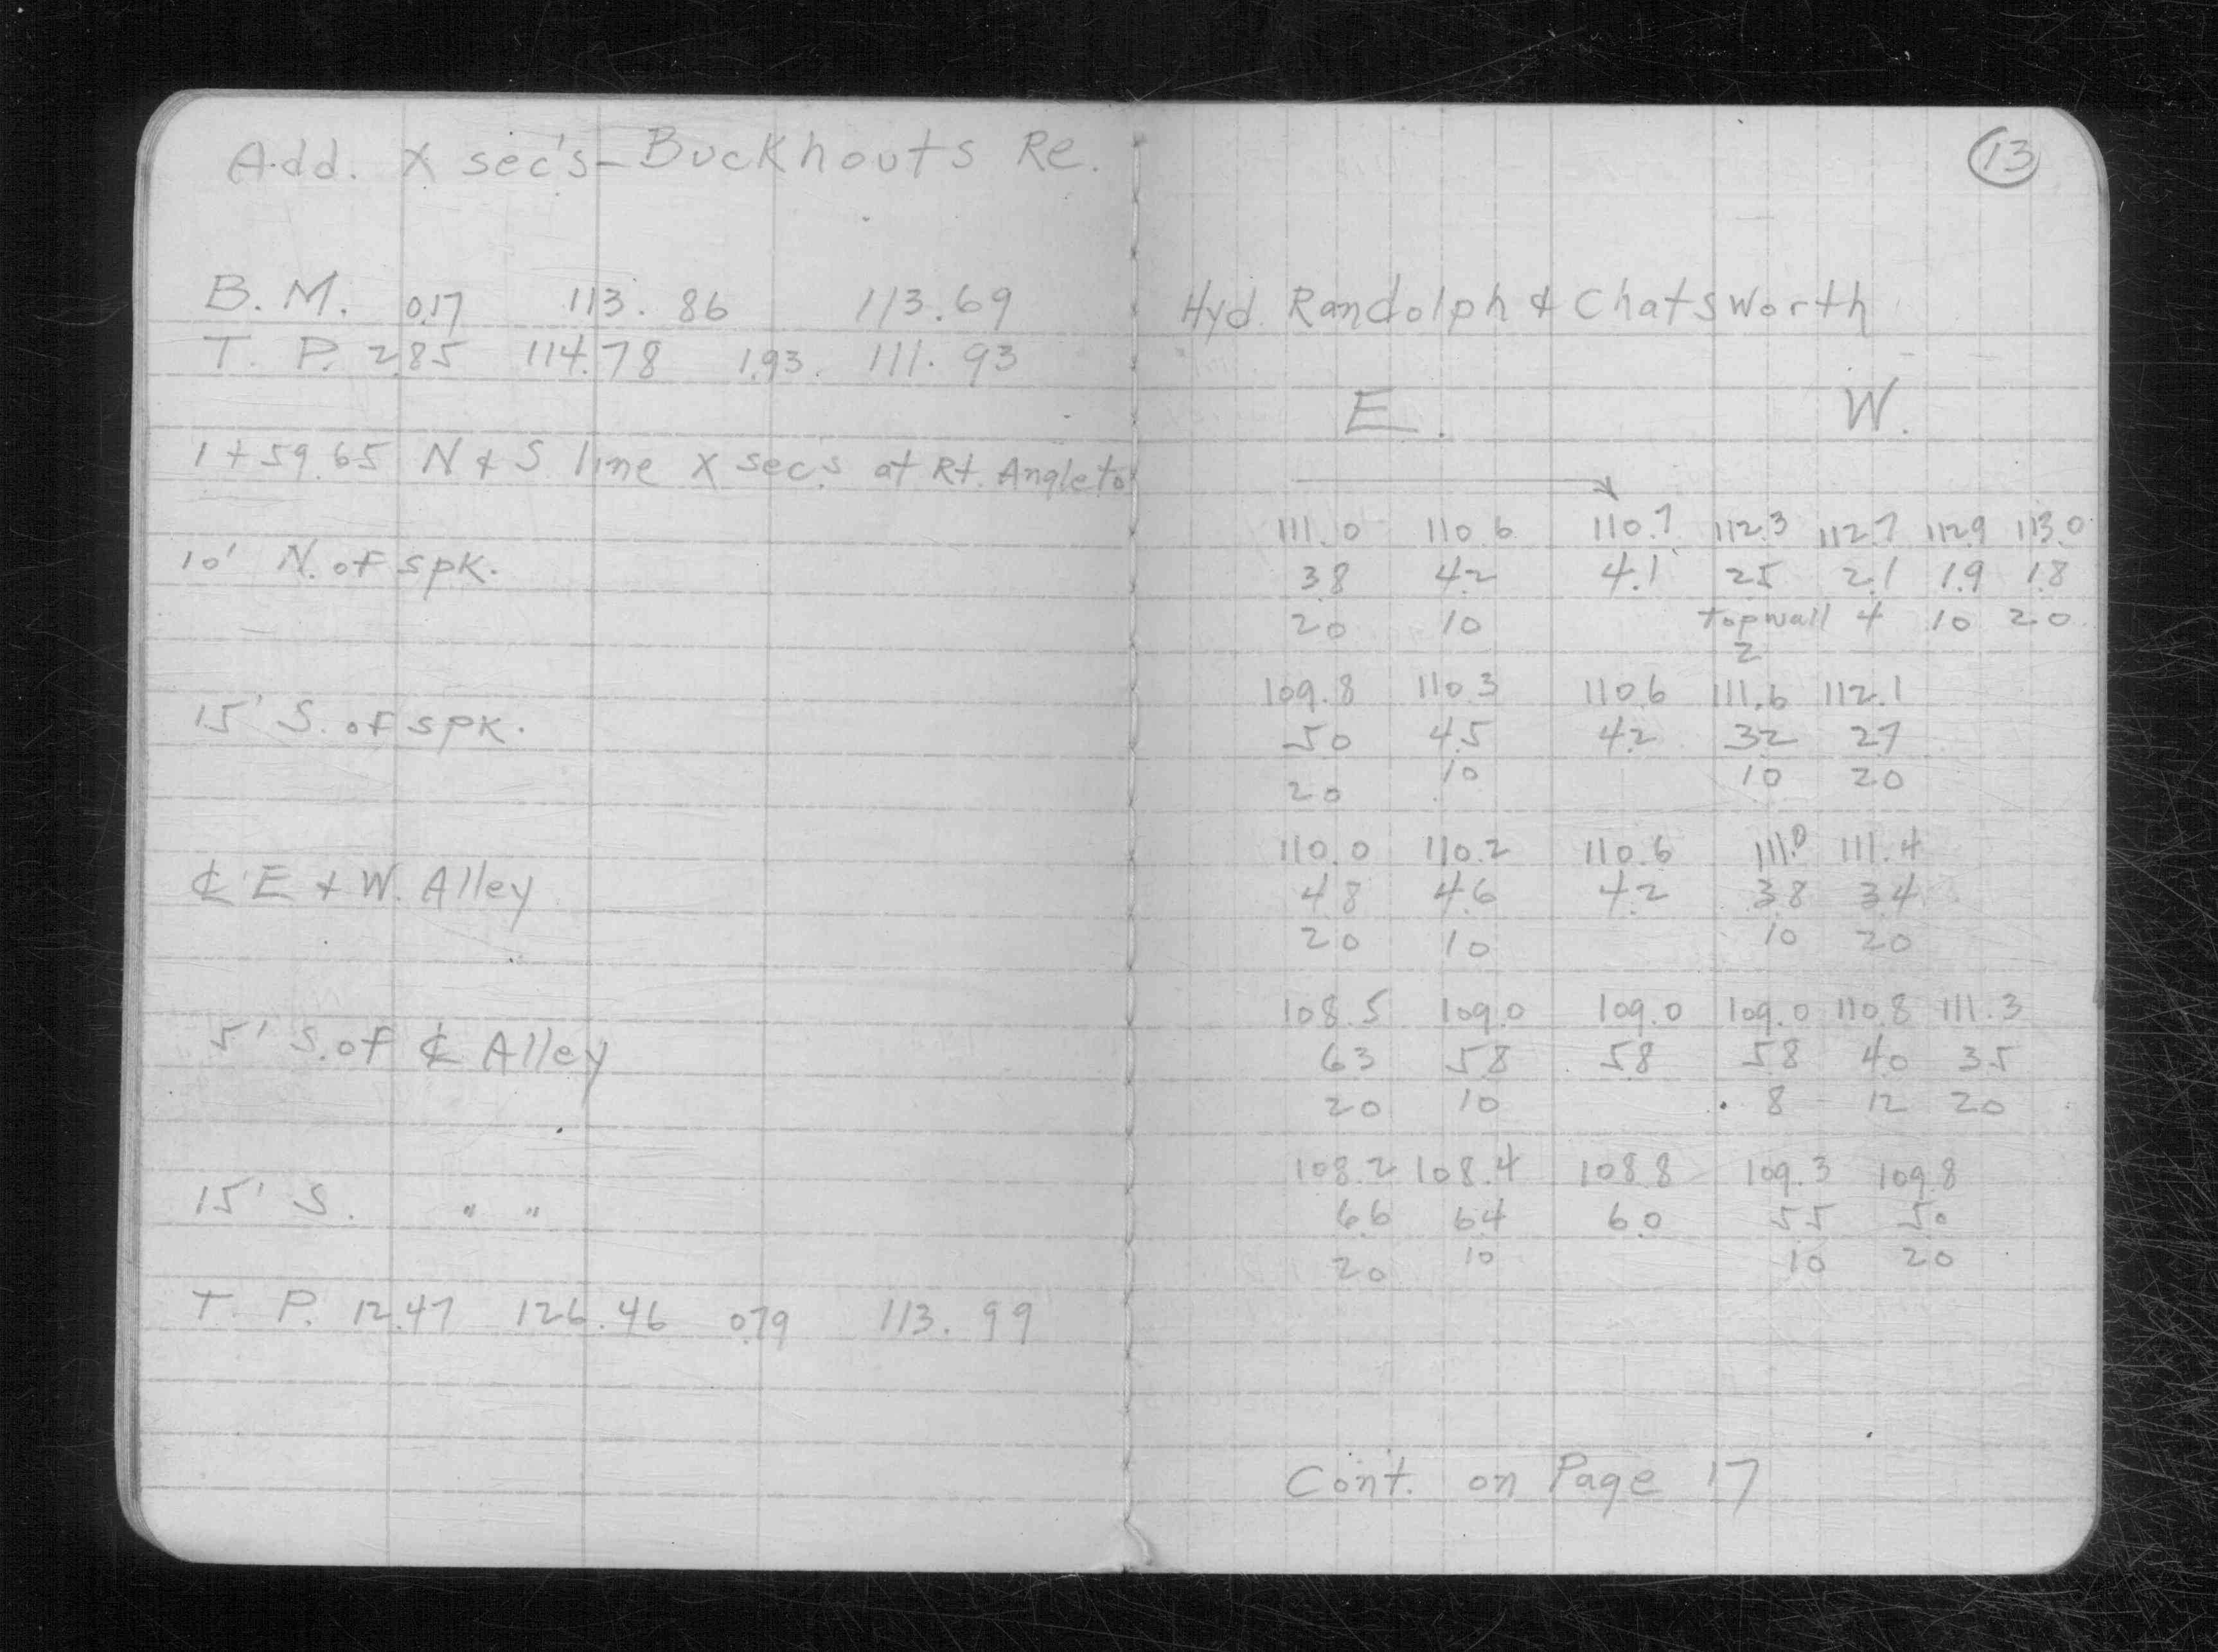 Add. X sec's - Buckhouts Re.
B. M. 0.17 113.86 113.69
T. P. 2.85 114.78 1.93 111.93
1+59.65 N & S line X sec's at Rt. Angle to
10' N. of spk.
15' S. of spk.
℄ E & W. Alley
5' S. of ℄ Alley
15' S. " "
T. P. 12.47 126.46 0.79 113.99
13
Hyd. Randolph & Chatsworth
E. W.
111.0 110.6 110.7 112.3 112.7 112.9 113.0
3.8 4.2 4.1 2.5 2.1 1.9 1.8
20 10 topwall 4 10 20
2
109.8 110.3 110.6 111.6 112.1
5.0 4.5 4.2 3.2 2.7
20 10 10 20
110.0 110.2 110.6 111.0 111.4
4.8 4.6 4.2 3.8 3.4
20 10 10 20
108.5 109.0 109.0 109.0 110.8 111.3
6.3 5.8 5.8 5.8 4.0 3.5
20 10 8 12 20
108.2 108.4 108.8 109.3 109.8
6.6 6.4 6.0 5.5 5.0
20 10 10 20
Cont. on Page 17